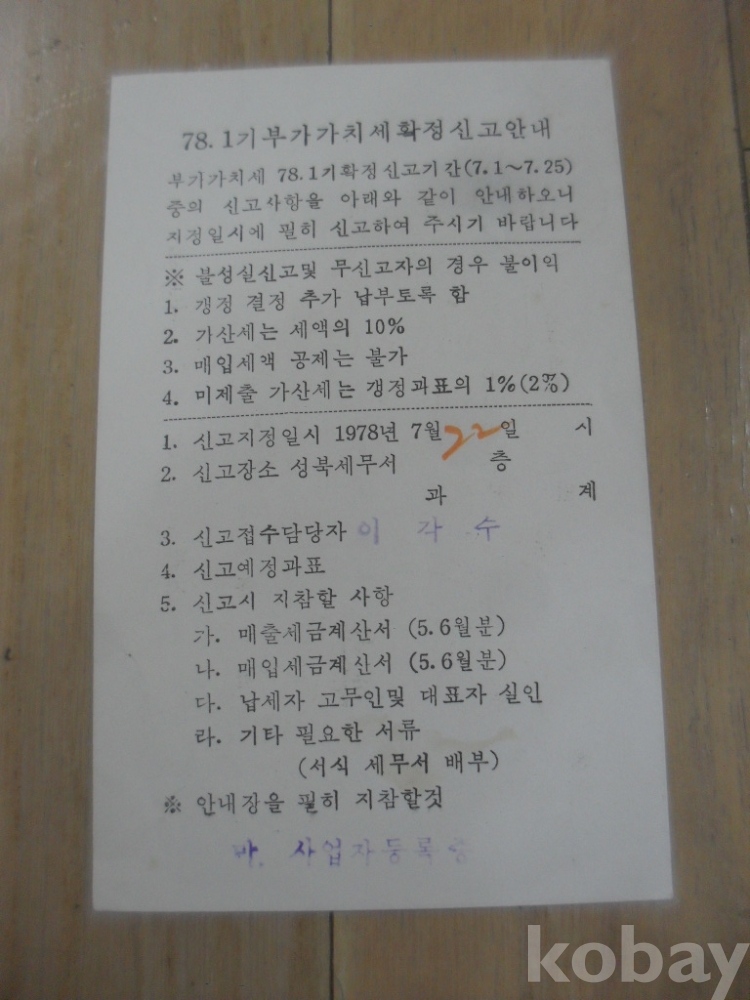 78. 1기부가가치세확정신고안내
부가가치세 78.1기확정신고기간(7.1～7.25)
중의 신고사항을 아래와 같이 안내하오니
지정일시에 필히 신고하여 주시기 바랍니다
※ 불성실신고및 무신고자의 경우 불이익
1. 갱정 결정 추가 납부토록 함
2. 가산세는 세액의 10%
3. 매입세액 공제는 불가
4. 미제출 가산세는 갱정과표의 1%(2%)
1. 신고지정일시 1978년 7월 22일 시
2. 신고장소 성북세무서 층
과 계
3. 신고접수담당자 이 각 수
4. 신고예정과표
5. 신고시 지참할 사항
가. 매출세금계산서 (5.6월분)
나. 매입세금계산서 (5.6월분)
다. 납세자 고무인및 대표자 실인
라. 기타 필요한 서류
(서식 세무서 배부)
※ 안내장을 필히 지참할것
바. 사업자등록증
kobay